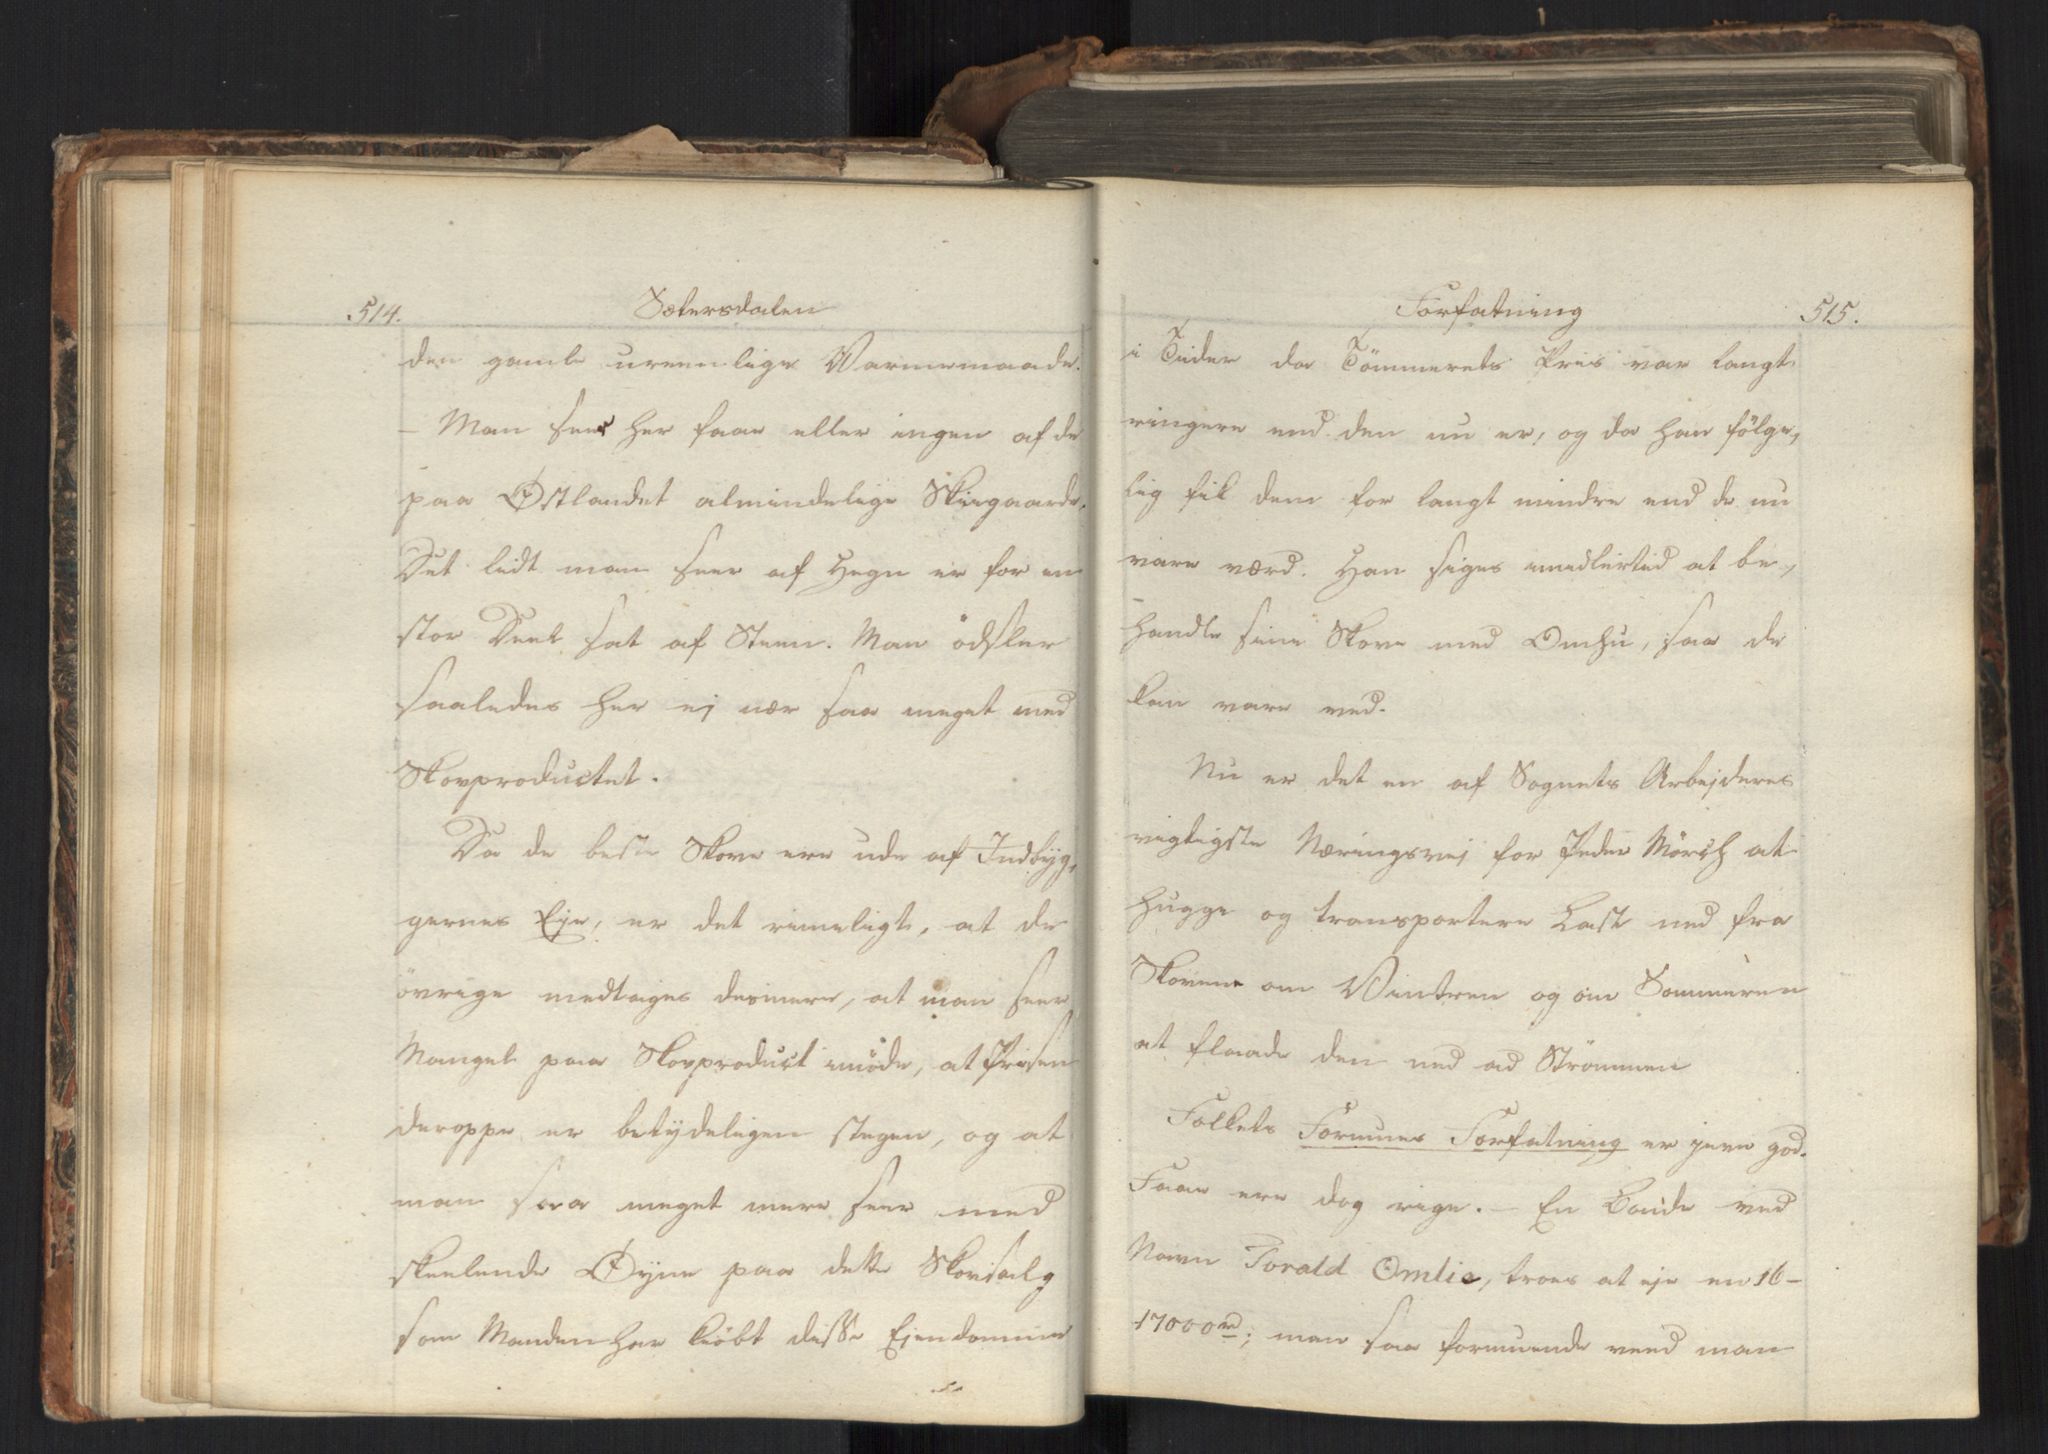 514.
Sætersdalen
den gamle ureenlige Varmemaade.
– Man seer her faae eller ingen af de
paa Østlandet almindelige Skiegaarde.
Det lidt man seer af Hegn er for en
stor Deel sat af Steen. Man ödsler
saaledes her ej nær saa meget med
Skovproductet.
Da de beste Skove ere ude af Indbyg,
gernes Eje, er det rimeligt, at de
övrige medtages desmere, at man seer
Mangel paa Skovproduct imöde, at Prisen
deroppe er betydeligen stegen, og at
man saa meget mere seer med
skeelende Øyne paa dette Skovsalg
som Manden har kiöbt disse Ejendomme
Forfatning
515.
i Tider da Tömmerets Priis var langt
ringere end den nu er, og da han fölge,
lig fik dem for langt mindre end de nu
vare værd. Han siges imidlertid at be,
handle sine Skove med Omhu, saa de
kan vare ved.
Nu er det en af Sognets Arbejderes
vigtigste Næringsvej for Peder Mörch at
hugge og transportere Last ned fra
Skovene om Vintren og om Sommeren
at flaade den ned ad Strömmen
Folkets Formues Forfatning er jevn god.
Faae ere dog rige. – En Bonde ved
Navn Torald Omlie, troes at eje en 16–
17000 rd; man saa formuende veed man